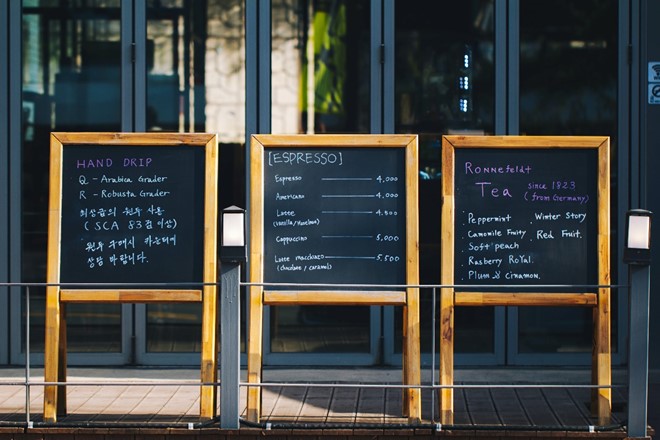 HAND DRIP
Q - Arabica Grader
R - Robusta Grader
최상급의 원두 사용
( SCA 83점 이상)
원두 구매시 카운터에
상담 바랍니다.
[ESPRESSO]
Espresso 4,000
Americano 4,000
Latte 4,500
(Vanilla/Hazelnut)
Cappuccino 5,000
Latte macchiato 5,500
(chocolate / caramel)
Ronnefeldt
Tea since 1823
( from Germany)
Peppermint
Camomile Fruity
Soft peach
Rasberry RoYal.
Plum & Cinnamon.
Winter Story
Red Fruit.